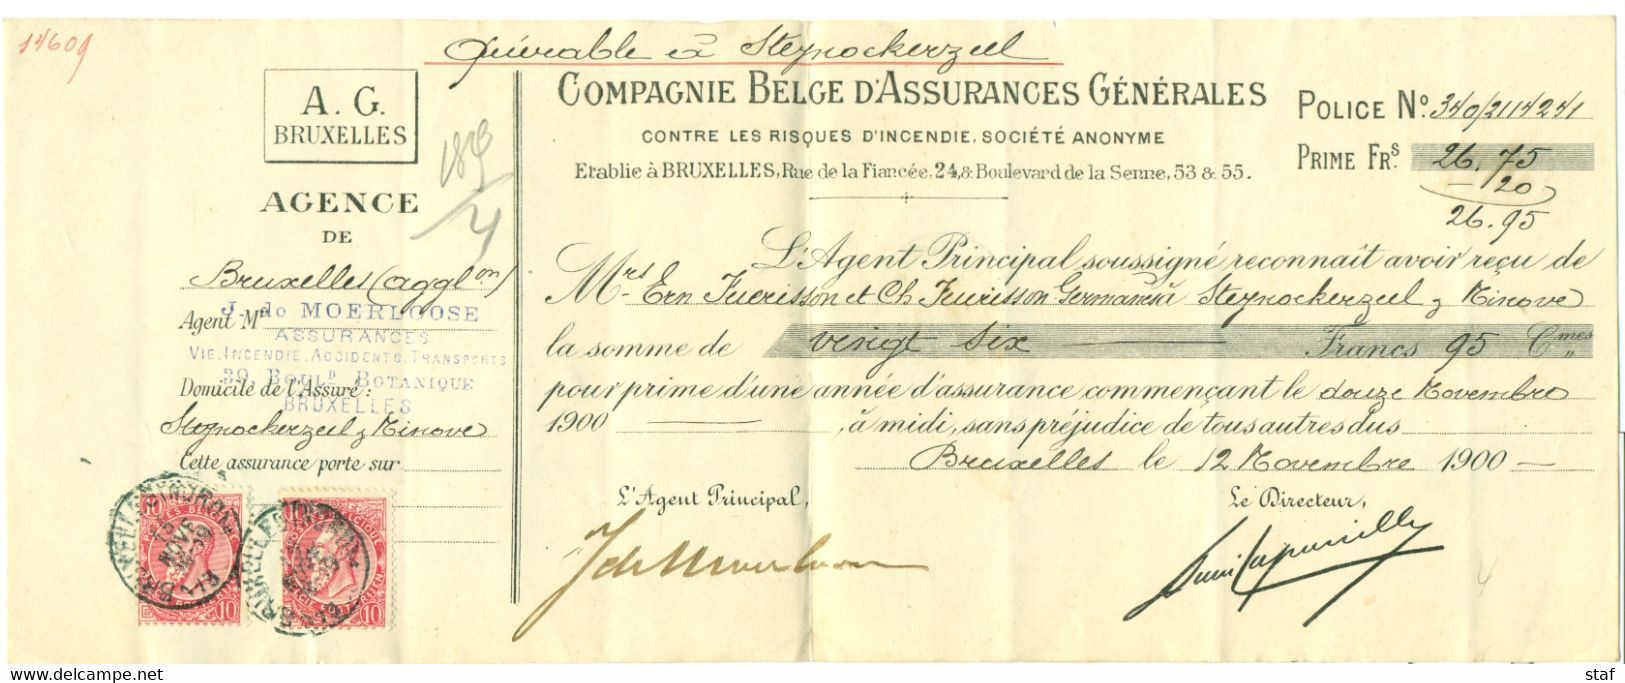 14609
Quérable à Steynockerzeel
A. G.
BRUXELLES
AGENCE
DE
Bruxelles (aggl.on)
Agent Mr
J. de MOERLOOSE
ASSURANCES
VIE. INCENDIE. ACCIDENTS. TRANSPORTS
39 BOULD BOTANIQUE
BRUXELLES
Domicile de l'Assuré:
Steynockerzeel & Ninove
Cette assurance porte sur
COMPAGNIE BELGE D'ASSURANCES GÉNÉRALES
CONTRE LES RISQUES D'INCENDIE. SOCIÉTÉ ANONYME
Etablie à BRUXELLES, Rue de la Fiancée, 24, & Boulevard de la Senne, 53 & 55.
POLICE No. 340/2114241
PRIME FRS. 26.75
20
26.95
L'Agent Principal soussigné reconnaît avoir reçu de
Mrs Ern et Ch Germains à Steynockerzeel & Ninove
la somme de vingt six Francs 95 Cmes
pour prime d'une année d'assurance commençant le douze Novembre
1900, à midi, sans préjudice de tous autres dus
Bruxelles le 12 Novembre 1900
L'Agent Principal,
Le Directeur,
J de Moerloose
10 10
10 10
4
delcampe.net
staf